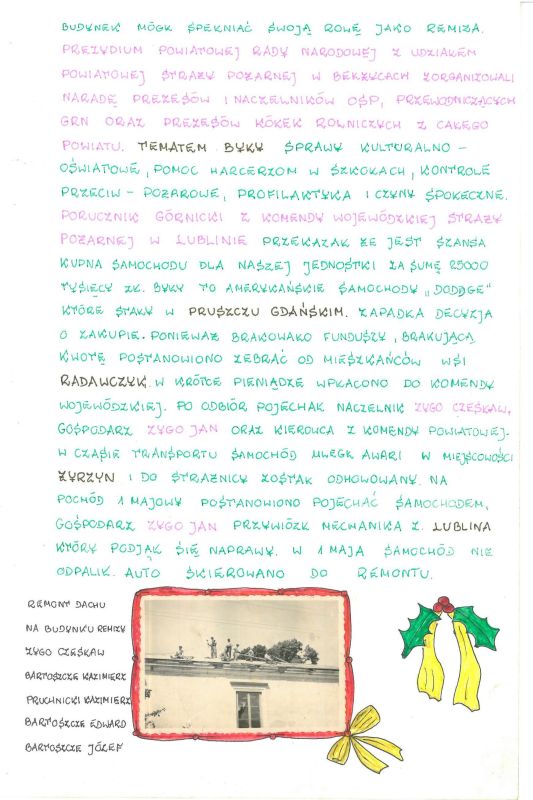 BUDYNEK MÓGŁ SPEŁNIAĆ SWOJĄ ROLĘ JAKO REMIZA.
PREZYDIUM POWIATOWEJ RADY NARODOWEJ Z UDZIAŁEM
POWIATOWEJ STRAŻY POŻARNEJ W BEŁŻYCACH ZORGANIZOWALI
NARADĘ PREZESÓW I NACZELNIKÓW OSP, PRZEWODNICZĄCYCH
GRN ORAZ PREZESÓW KÓŁEK ROLNICZYCH Z CAŁEGO
POWIATU. TEMATEM BYŁY SPRAWY KULTURALNO -
OŚWIATOWE, POMOC HARCERZOM W SZKOŁACH, KONTROLE
PRZECIW - POŻAROWE, PROFILAKTYKA I CZYNY SPOŁECZNE.
PORUCZNIK GÓRNICKI Z KOMENDY WOJEWÓDZKIEJ STRAŻY
POŻARNEJ W LUBLINIE PRZEKAZAŁ ŻE JEST SZANSA
KUPNA SAMOCHODU DLA NASZEJ JEDNOSTKI ZA SUMĘ 25000
TYSIĘCY ZŁ. BYŁY TO AMERYKAŃSKIE SAMOCHODY „DODDGE"
KTÓRE STAŁY W PRUSZCZU GDAŃSKIM. ZAPADŁA DECYZJA
O ZAKUPIE. PONIEWAŻ BRAKOWAŁO FUNDUSZY, BRAKUJĄCĄ
KWOTĘ POSTANOWIONO ZEBRAĆ OD MIESZKAŃCÓW WSI
RADAWCZYK. W KRÓTCE PIENIĄDZE WPŁACONO DO KOMENDY
WOJEWÓDZKIEJ. PO ODBIÓR POJECHAŁ NACZELNIK ŻYGO CZESŁAW,
GOSPODARZ ŻYGO JAN ORAZ KIEROWCA Z KOMENDY POWIATOWEJ.
W CZASIE TRANSPORTU SAMOCHÓD ULEGŁ AWARI W MIEJSCOWOŚCI
ŻYRZYN I DO STRAŻNICY ZOSTAŁ ODHOLOWANY. NA
POCHÓD 1 MAJOWY POSTANOWIONO POJECHAĆ SAMOCHODEM,
GOSPODARZ ŻYGO JAN PRZYWIÓZŁ MECHANIKA Z LUBLINA
KTÓRY PODJĄŁ SIĘ NAPRAWY. W 1 MAJA SAMOCHÓD NIE
ODPALIŁ. AUTO SKIEROWANO DO REMONTU.
REMONT DACHU
NA BUDYNKU REMIZY
ŻYGO CZESŁAW
BARTOSZCZE KAZIMIERZ
PRUCHNICKI KAZIMIERZ
BARTOSZCZE EDWARD
BARTOSZCZE JÓZEF